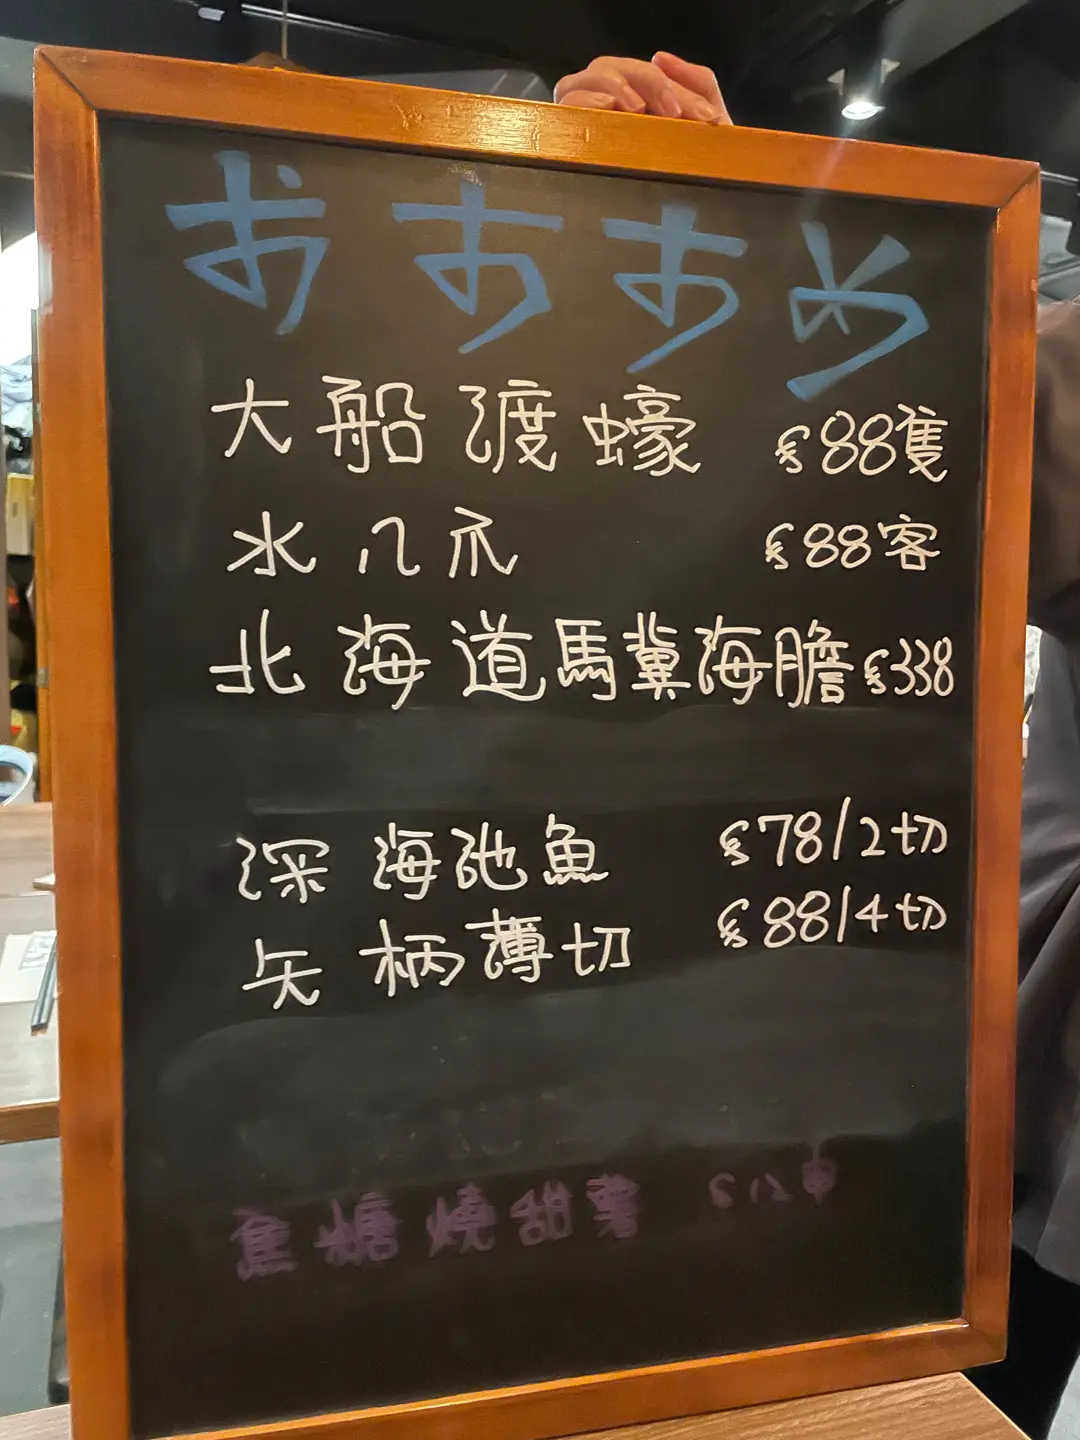 おすすめ
大船渡蠔 $88隻
水八爪 $88客
北海道馬糞海膽 $338
深海池魚 $78/2切
矢柄薄切 $88/4切
焦糖燒甜薯 $12串